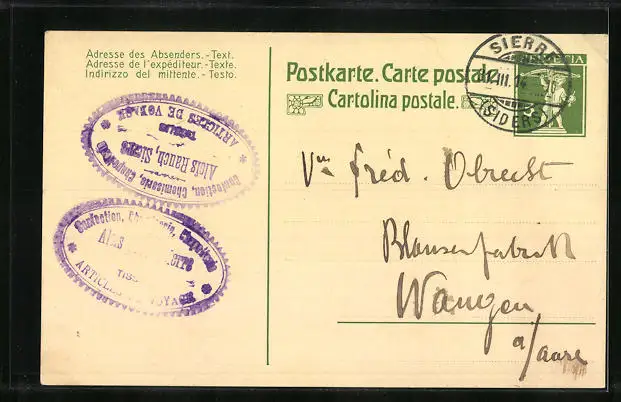 Adresse des Absenders.-Text.
Adresse de l'expéditeur.-Texte.
Indirizzo del mittente.-Testo.
Postkarte. Carte postale.
Cartolina postale.
SIERRE
12.III.14
(SIDERS)
HELVETIA
Confection, Chemiserie, Chapellerie
Alois Rauch, Sierre
TISSUS
ARTICLES DE VOYAGE
Confection, Chemiserie, Chapellerie
Alois Sierre
TISSUS
ARTICLES DE VOYAGE
Fréd. Obrecht
Blousenfabrik
Wangen
a/Aare